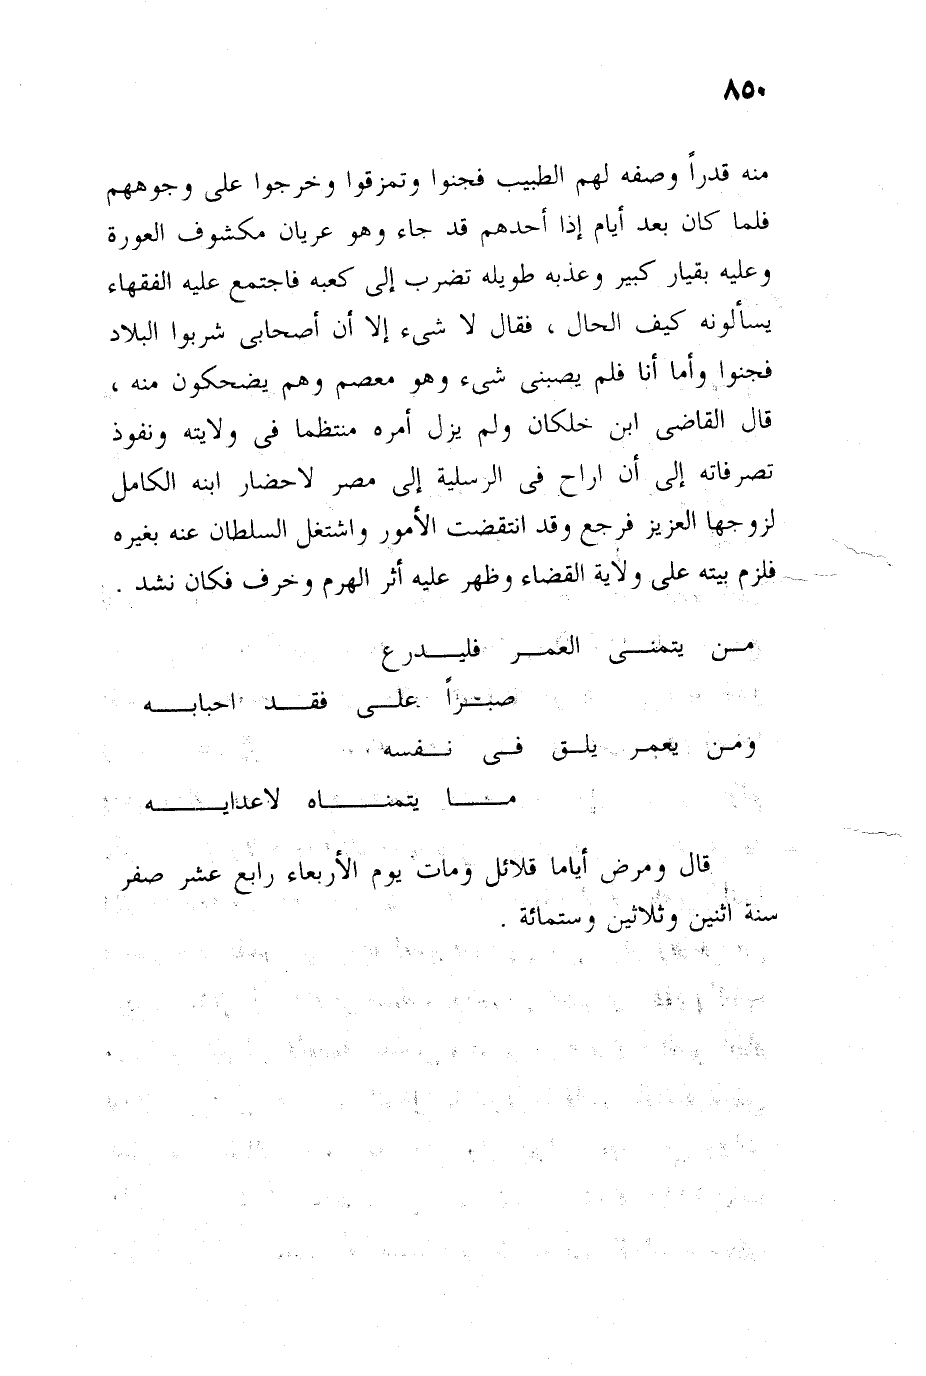 ٨٥٠
منه قدراً وصفه لهم الطبيب فجنوا وتمزقوا وخرجوا على وجوههم
فلما كان بعد أيام إذا أحدهم قد جاء وهو عريان مكشوف العورة
وعليه بقيار كبير وعذبه طويله تضرب إلى كعبه فاجتمع عليه الفقهاء
يسألونه كيف الحال ، فقال لا شىء إلا أن أصحابى شربوا البلاد
فجنوا وأما أنا فلم يصبنى شىء وهو معصم وهم يضحكون منه ،
قال القاضى ابن خلكان ولم يزل أمره منتظما فى ولايته ونفوذ
تصرفاته إلى أن اراح فى الرسلية إلى مصر لاحضار ابنه الكامل
لزوجها العزيز فرجع وقد انتقضت الأمور واشتغل السلطان عنه بغيره
فلزم بيته على ولاية القضاء وظهر عليه أثر الهرم وخرف فكان نشد .
مـن يتمنـى العمـر فليـدرع
صبـراً علـى فقـد احبابـه
ومن يعمر يلـق فـى نـفسه
مـا يتمنـاه لاعدايـه
قال ومرض أياما قلائل ومات يوم الأربعاء رابع عشر صفر
سنة اثنين وثلاثين وستمائة .